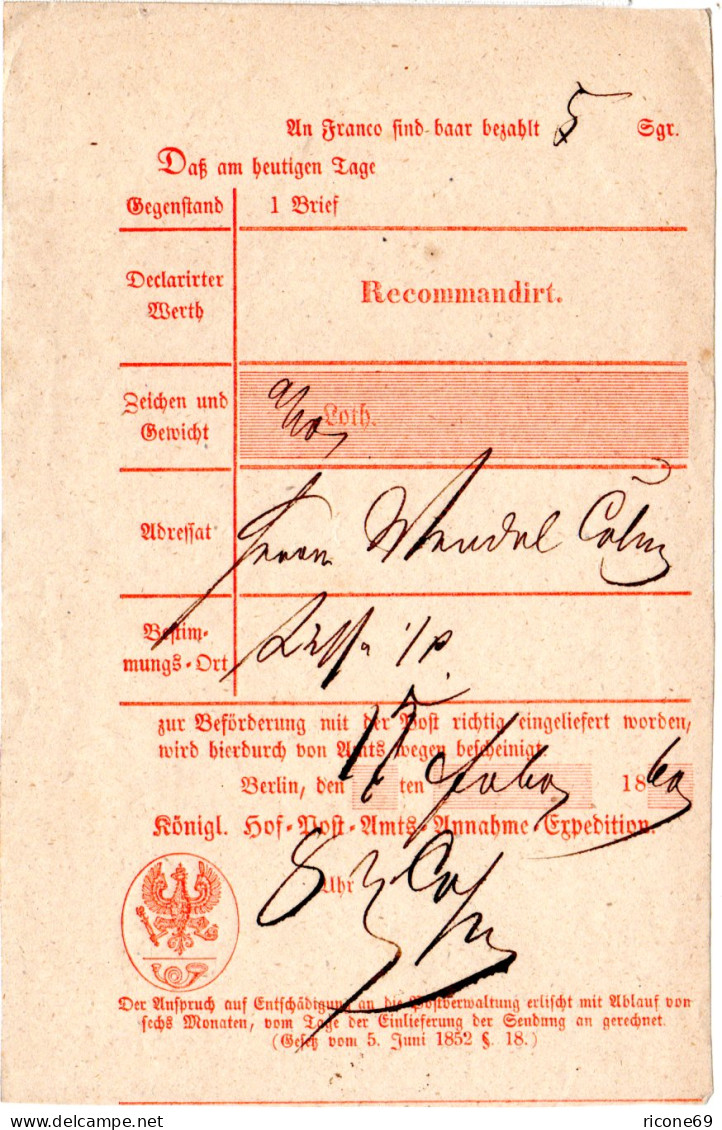 An Franco sind baar bezahlt 5 Sgr.
Daß am heutigen Tage
Gegenstand 1 Brief
Declarirter
Werth
Recommandirt.
Zeichen und
Gewicht
Loth.
Adressat
Herrn Wendel Cohn
Bestim-
mungs-Ort
Lissa i/p.
zur Beförderung mit der Post richtig eingeliefert worden,
wird hierdurch von Amts wegen bescheinigt.
Berlin, den 17 ten Febr 1860
Königl. Hof-Post-Amts-Annahme-Expedition.
8 Uhr
Der Anspruch auf Entschädigung an die Postverwaltung erlischt mit Ablauf von
sechs Monaten, vom Tage der Einlieferung der Sendung an gerechnet.
(Gesetz vom 5. Juni 1852 §. 18.)
delcampe.net
ricone69